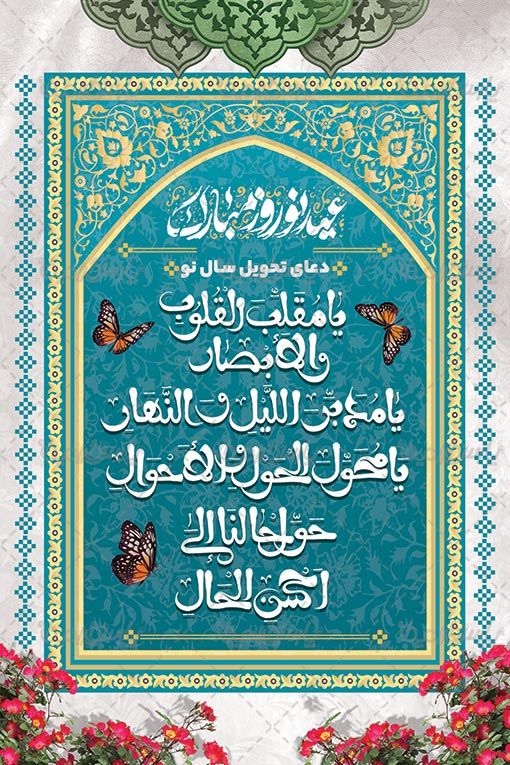 عید نوروز مبارک
دعای تحویل سال نو
یا مُقَلِّبَ الْقُلُوبِ
وَالْأَبْصَار
یا مُدَبِّرَ اللَّیْلِ وَ النَّهَارِ
یا مُحَوِّلَ الْحَوْلِ وَ الْأَحْوَالِ
حَوِّل حَالَنَا إِلَی
أَحْسَنِ الْحَالِ